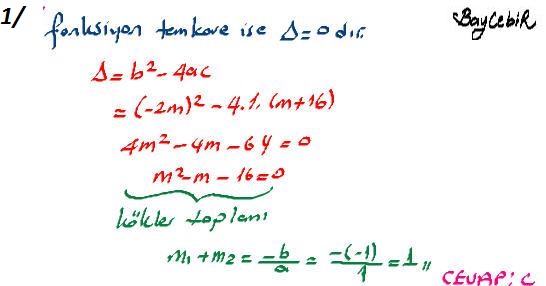 1/ fonksiyon temkare ise Δ=0 dır.
BayCebiR
Δ = b² - 4ac
= (-2m)² - 4.1.(m+16)
4m² - 4m - 64 = 0
m² - m - 16 = 0
kökler toplamı
m₁ + m₂ = -b/a = -(-1)/1 = 1 //
CEVAP: C